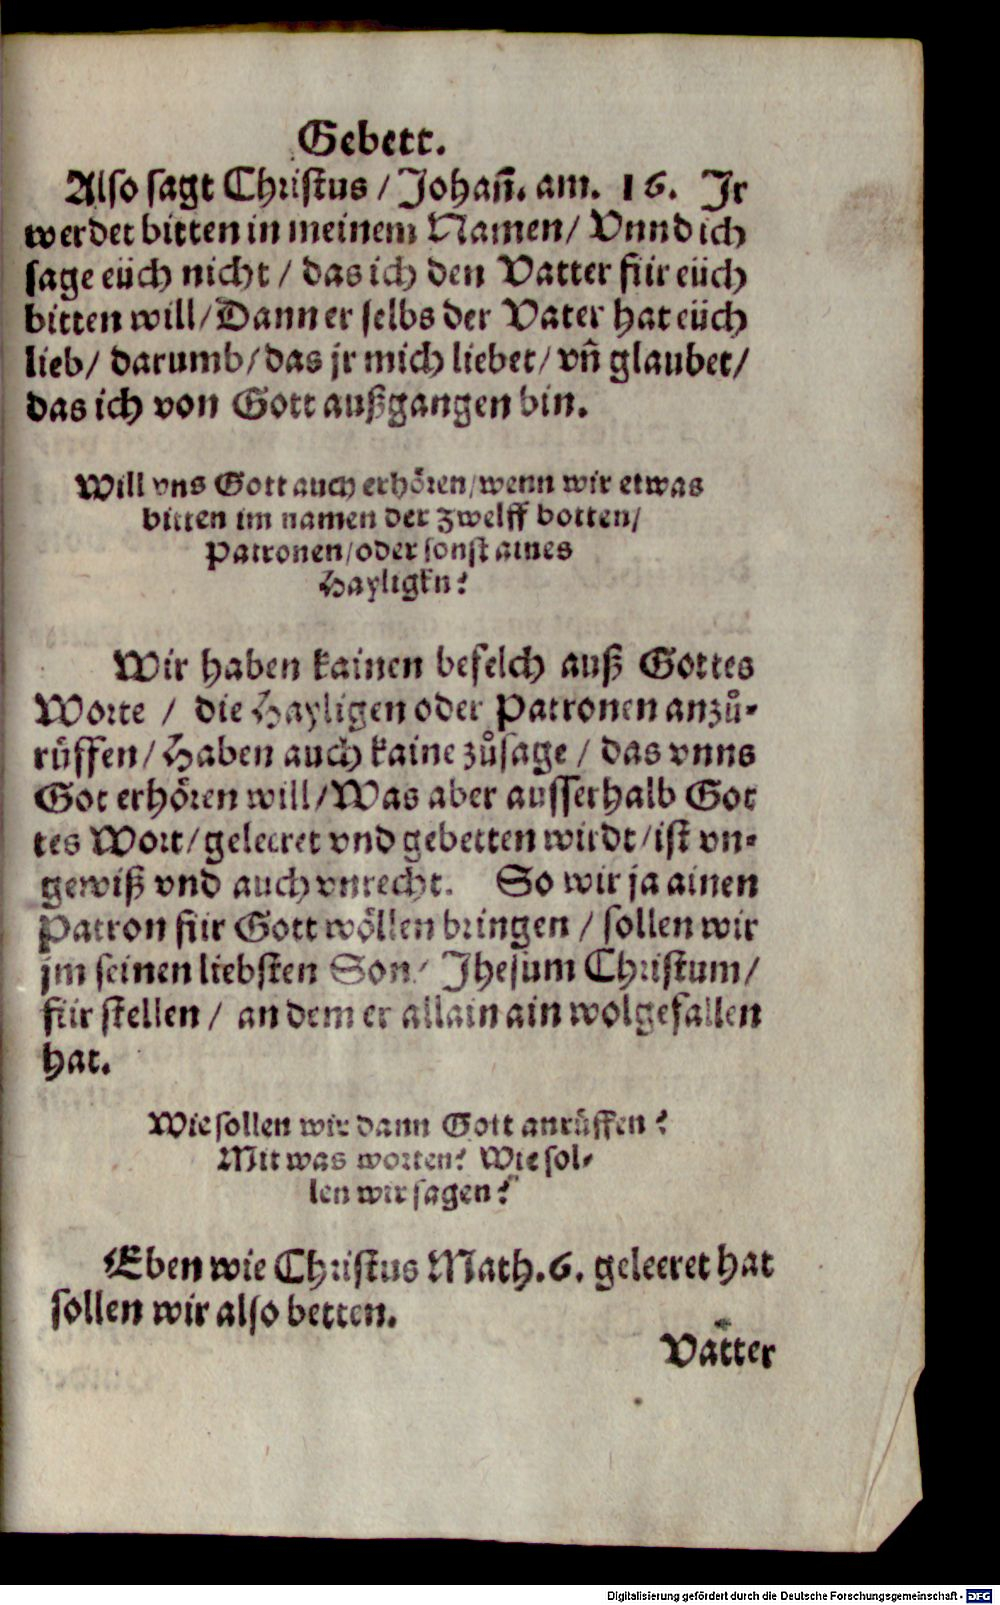 Gebett.
Also sagt Christus / Johañ. am. 16. Jr
werdet bitten in meinem Namen / Vnnd ich
sage eüch nicht / das ich den Vatter für eüch
bitten will / Dann er selbs der Vater hat eüch
lieb / darumb / das jr mich liebet / vñ glaubet /
das ich von Gott außgangen bin.
Will vns Gott auch erhören / wenn wir etwas
bitten im namen der zwelff botten /
Patronen / oder sonst aines
Hayligen?
Wir haben kainen befelch auß Gottes
Worte / die Hayligen oder Patronen anzů-
rüffen / Haben auch kaine zůsage / das vnns
Got erhören will / Was aber ausserhalb Got
tes Wort / geleeret vnd gebetten wirdt / ist vn-
gewiß vnd auch vnrecht. So wir ja ainen
Patron für Gott wöllen bringen / sollen wir
jm seinen liebsten Son / Jhesum Christum /
für stellen / an dem er allain ain wolgefallen
hat.
Wie sollen wir dann Gott anrüffen?
Mit was worten? Wie sol-
len wir sagen?
Eben wie Christus Math. 6. geleeret hat
sollen wir also betten.
Vatter
Digitalisierung gefördert durch die Deutsche Forschungsgemeinschaft - DFG